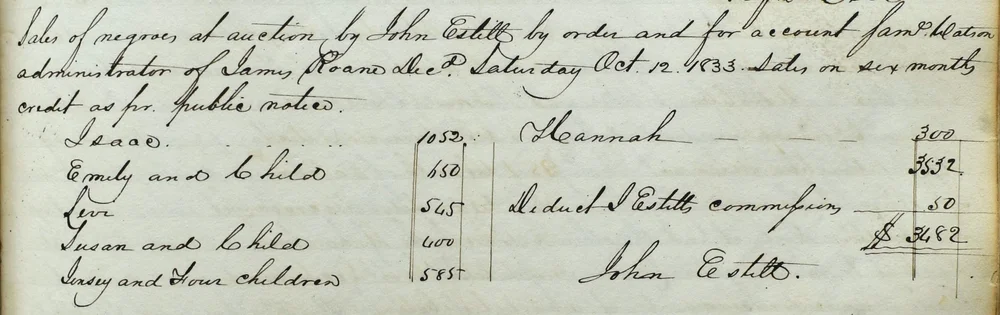 Sales of negroes at auction by John Estill by order and for account Saml. Watson
administrator of James Roane Decd. Saturday Oct. 12. 1833. Sales on six months
credit as pr. public notice.
Isaac. . . . . . . 1052.
Emily and Child 650
Levi 545
Susan and Child 400
Jinsey and Four children 585
Hannah — — — 300
3532
Deduct J Estills commissions — 50
$ 3482
John Estill.